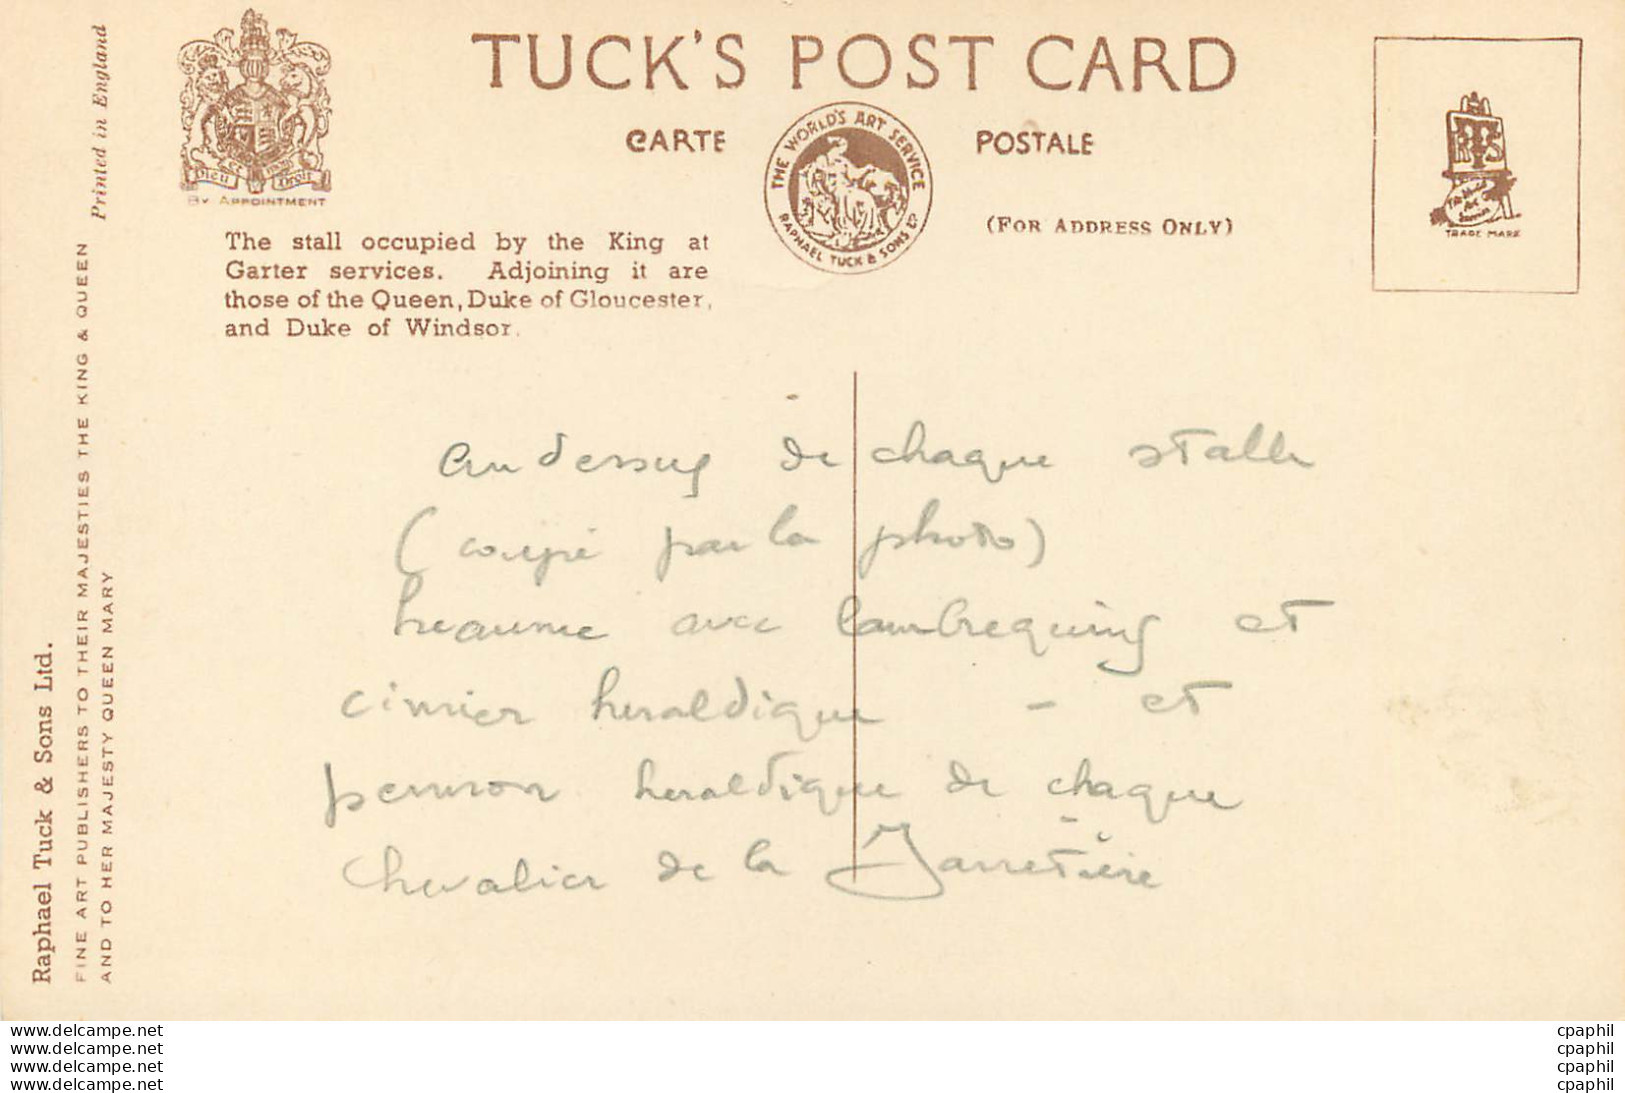 TUCK'S POST CARD
CARTE POSTALE
(FOR ADDRESS ONLY)
THE WORLD'S ART SERVICE
RAPHAEL TUCK & SONS LTD
Dieu et mon Droit
BY APPOINTMENT
RTS
The World's Art Service
TRADE MARK
The stall occupied by the King at
Garter services. Adjoining it are
those of the Queen, Duke of Gloucester,
and Duke of Windsor.
Printed in England
Raphael Tuck & Sons Ltd.
FINE ART PUBLISHERS TO THEIR MAJESTIES THE KING & QUEEN
AND TO HER MAJESTY QUEEN MARY
au dessus de chaque stalle
(coupé par la photo)
heaume avec lambrequins et
cimier heraldique - et
pennon heraldique de chaque
chevalier de la Jarretière
www.delcampe.net
www.delcampe.net
www.delcampe.net
www.delcampe.net
cpaphil
cpaphil
cpaphil
cpaphil